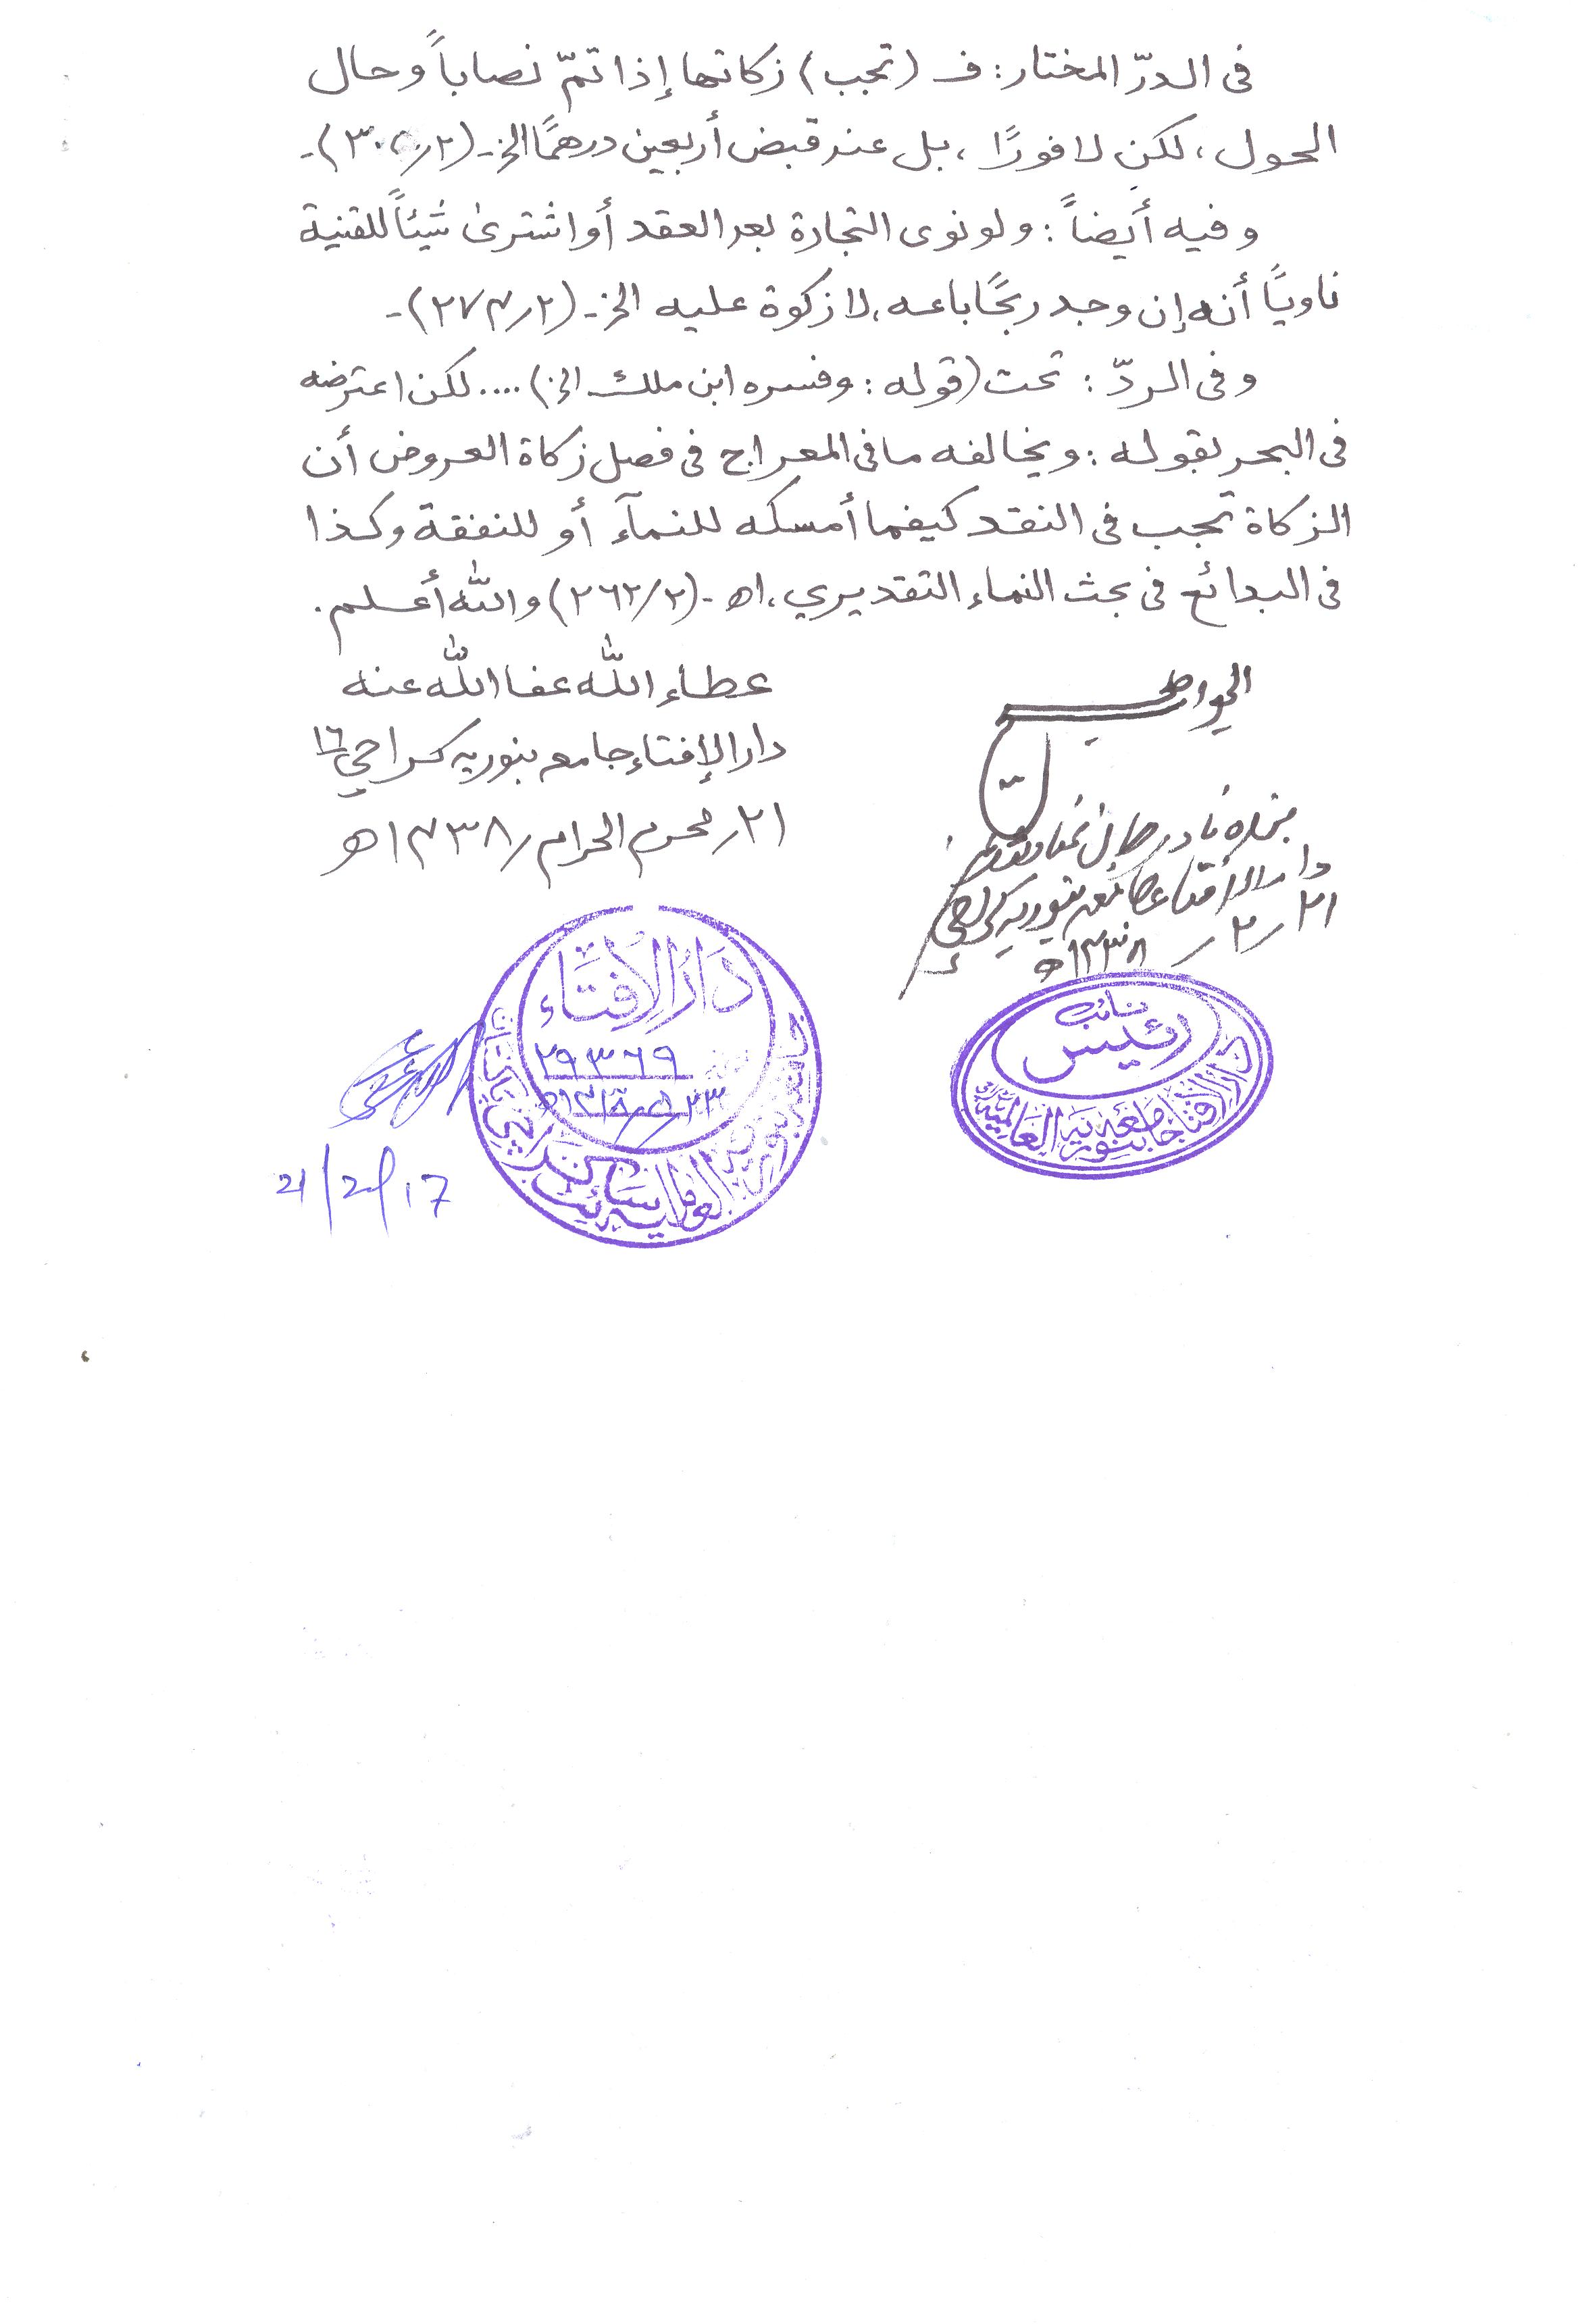 فى الدرّ المختار: ف (تجب) زكاتها إذا تمّ نصاباً وحال
الحول، لكن لا فورًا، بل عند قبض أربعين درهمًا الخ۔ (۲؍۳۰۵)۔
وفيه أيضاً: ولو نوى التجارة بعد العقد أو اشترىٰ شيئاً للقنية
ناويًا أنه إن وجد ربحًا باعه، لا زكوة عليه الخ۔ (۲؍۲۷۴)۔
وفى الردّ: تحت (قوله: وفسره ابن ملك الخ) .... لكن اعترضه
فى البحر بقوله: ويخالفه ما فى المعراج فى فصل زكاة العروض أن
الزكاة تجب فى النقد كيفما أمسكه للنمآء أو للنفقة وكذا
فى البدائع فى بحث النماء التقديري، اھ۔ (۲/۲۶۲) والله أعلم.
عطاء الله عفا الله عنه
دار الإفتاء جامعه بنوريه كراچي ١٦
۲۱؍ محرم الحرام؍ ۱۴۳۸ھ
الجواب صحيح
بنده نادر جان
دار الافتاء جامعہ بنوریہ کراچی
۲۱؍۲؍۱۴۳۸ھ
دَارُ الاِفتَاء
۲۹۳۶۹
جامعه بنوريه العالميه سائٹ کراچی پاکستان
نائب
رئيس
دار الافتا جامعه بنوريه العالمية
21/2/17